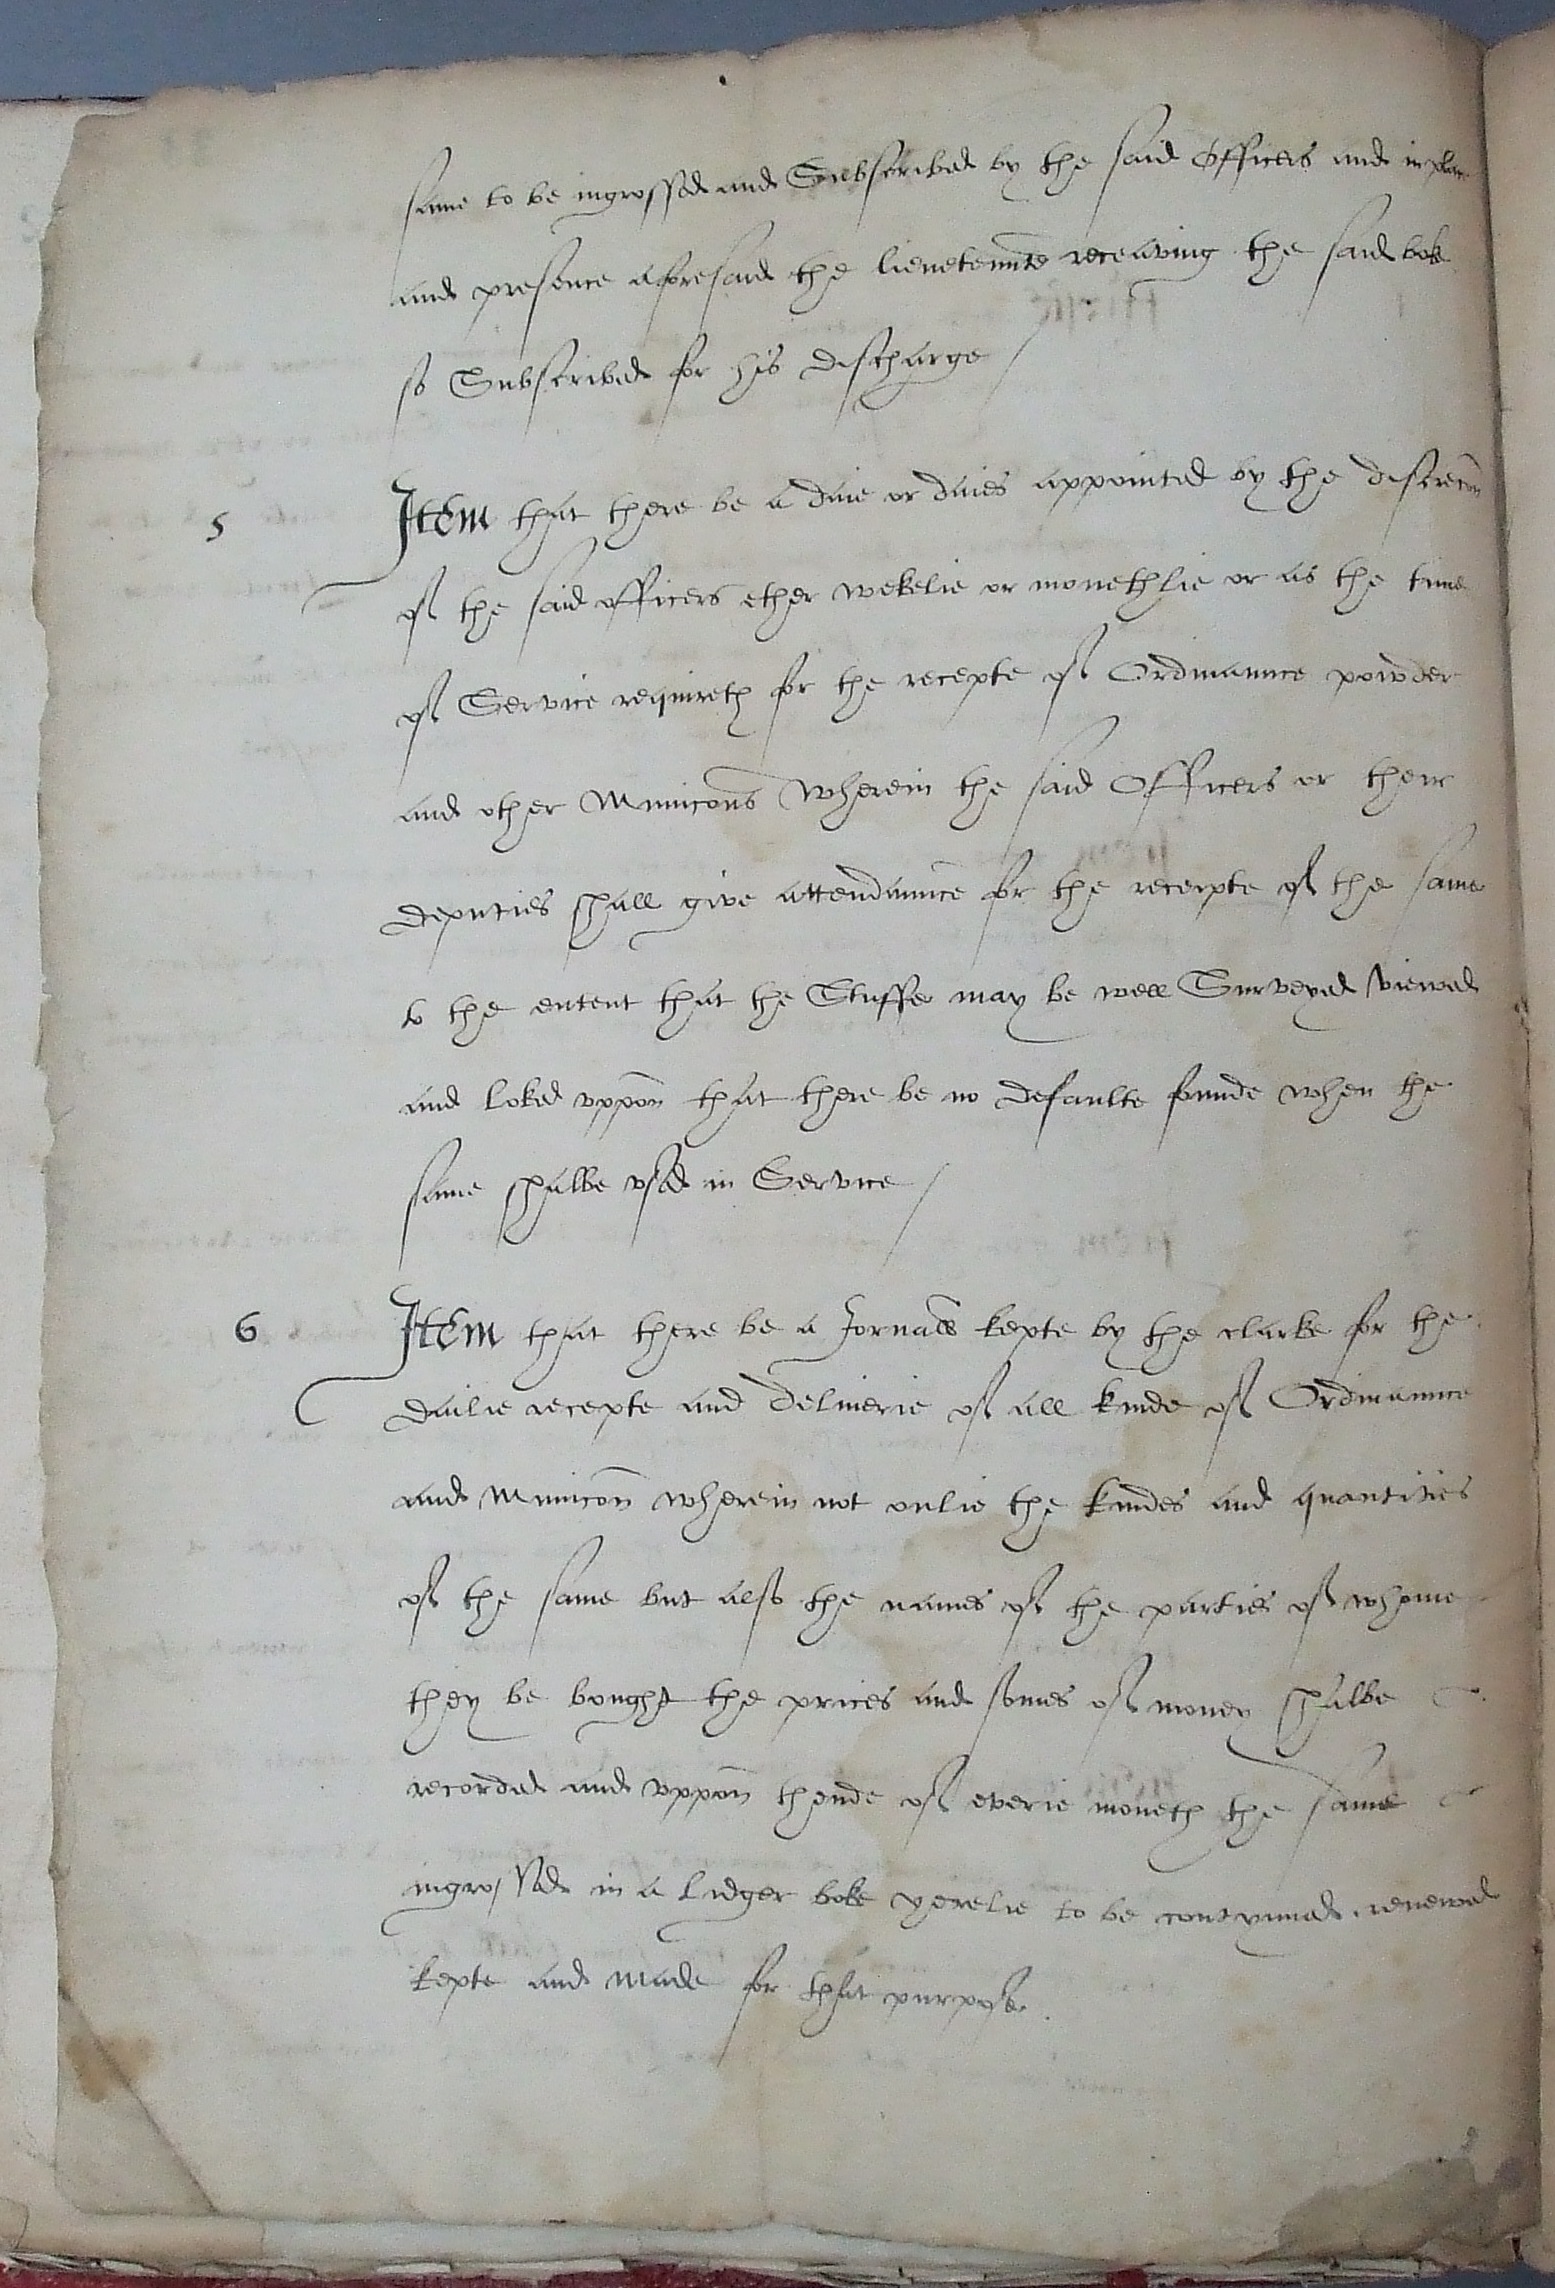 same to be ingrossed and Subscribed by the said Officers and in place
and presence aforesaid the lieuetennte receaving the said boke
so Subscribed for his discharge /
5 Item that there be a daie or daies appointed by the discrecon
of the said officers ether wekelie or monethlie or as the time
of Service requireth for the recepte of Ordinaunce powder
and other Municons wherein the said Officers or their
deputies shall give attendaunce for the receipte of the same
to the entent that the Stuffe may be well Surveyed viewed
and loked uppon that there be no defaulte founde when the
same shalbe used in Service /
6 Item that there be a Jornall kepte by the clarke for the
dailie recepte and deliuerie of all kinde of Ordinaunce
and Municon wherein not onlie the kindes and quantities
of the same but also the names of the parties of whome
they be bought the prices and somes of money shalbe
recorded and uppon thende of everie moneth the same
ingrossed in a Lidger boke yerelie to be contynued renewed
kepte and made for that purpose.